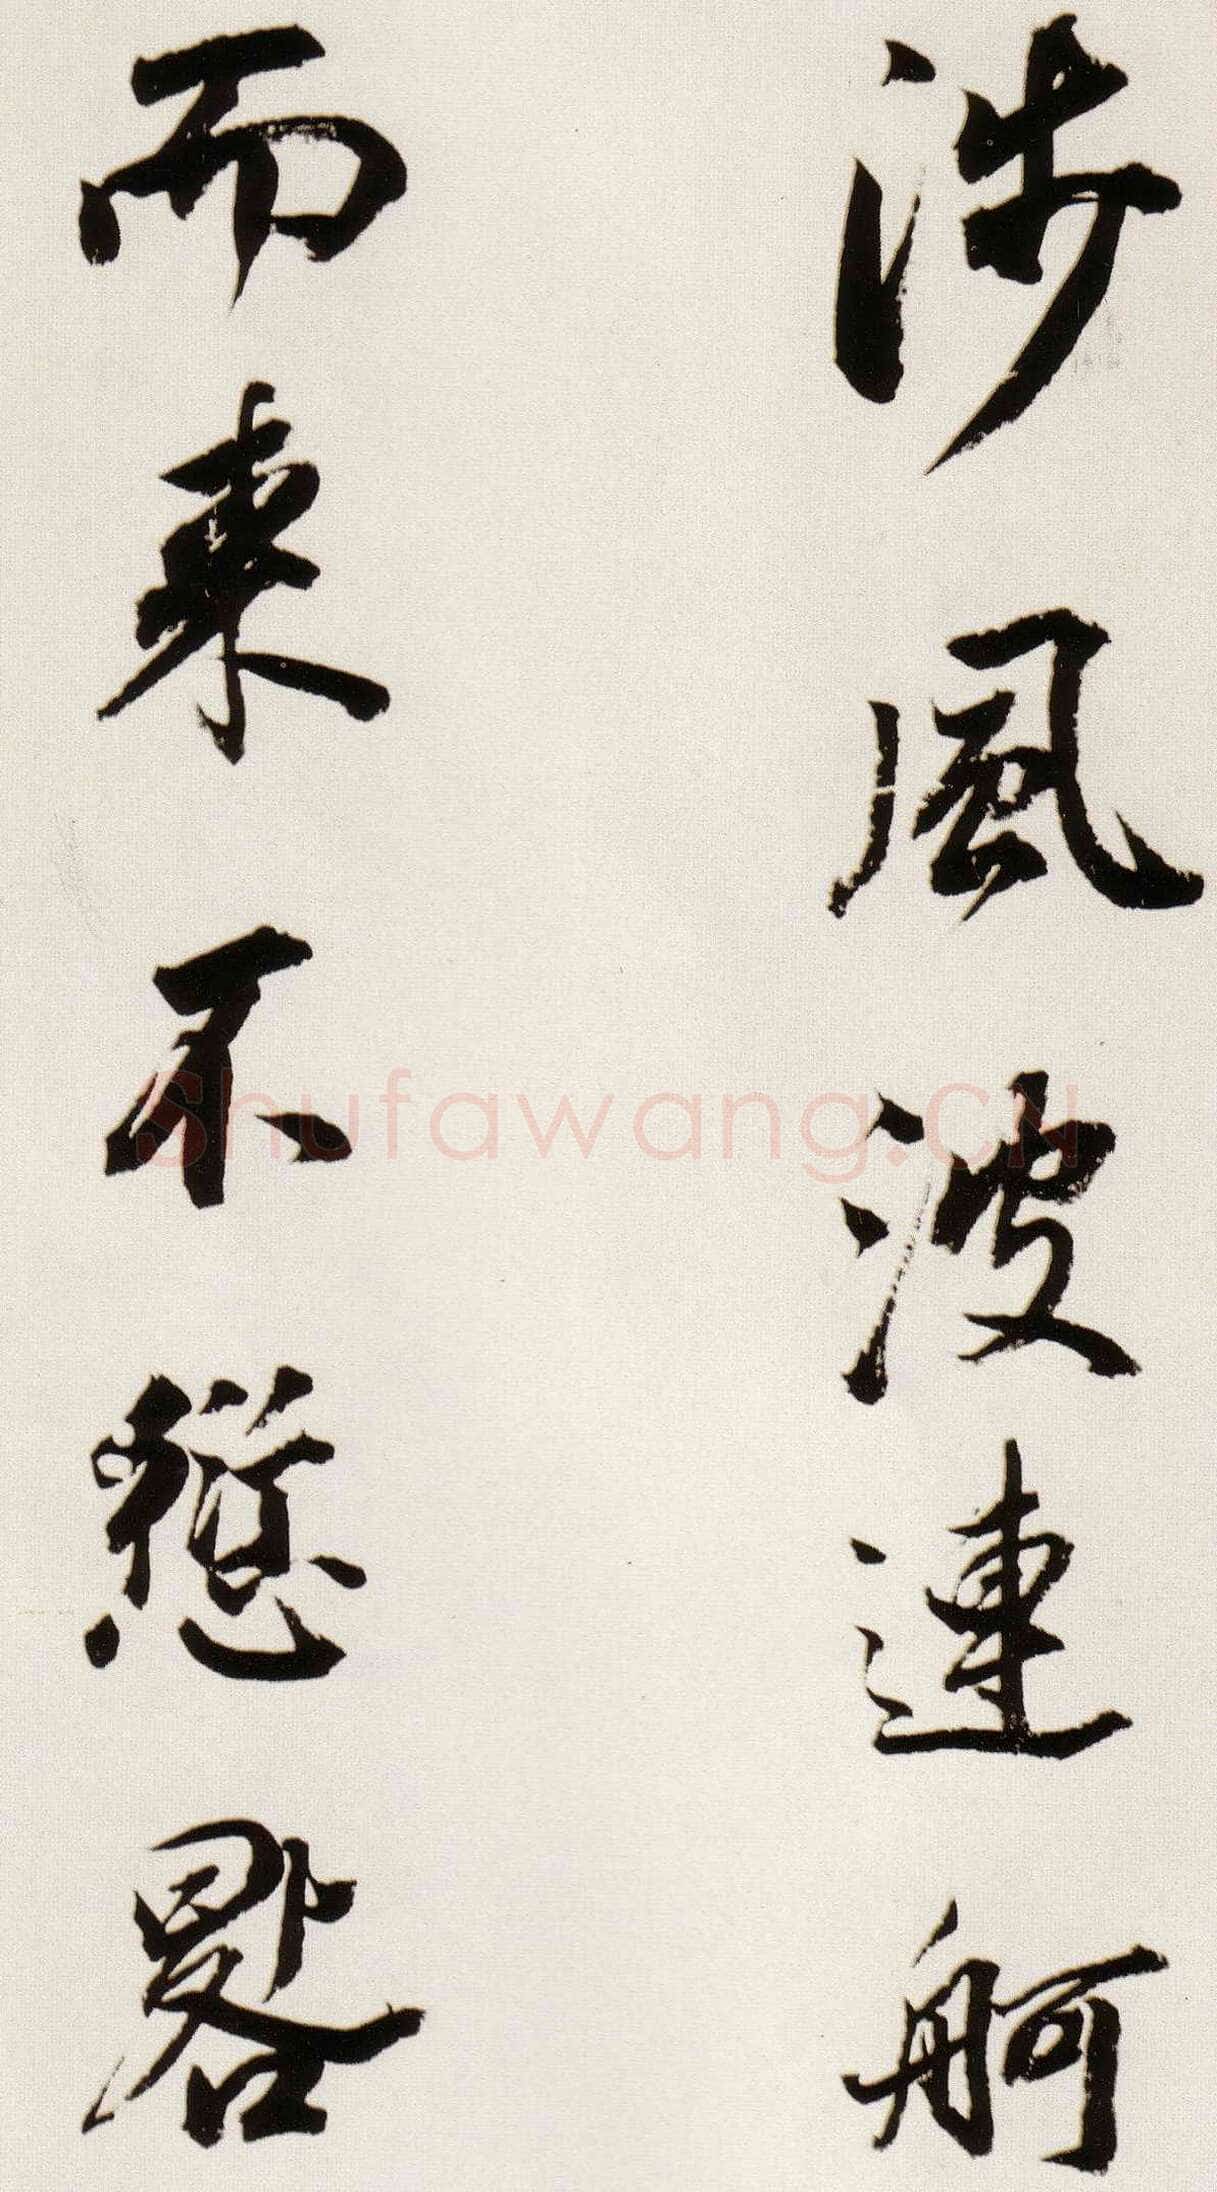 涉風波連舸
而来不愆晷
Shufawang.CN